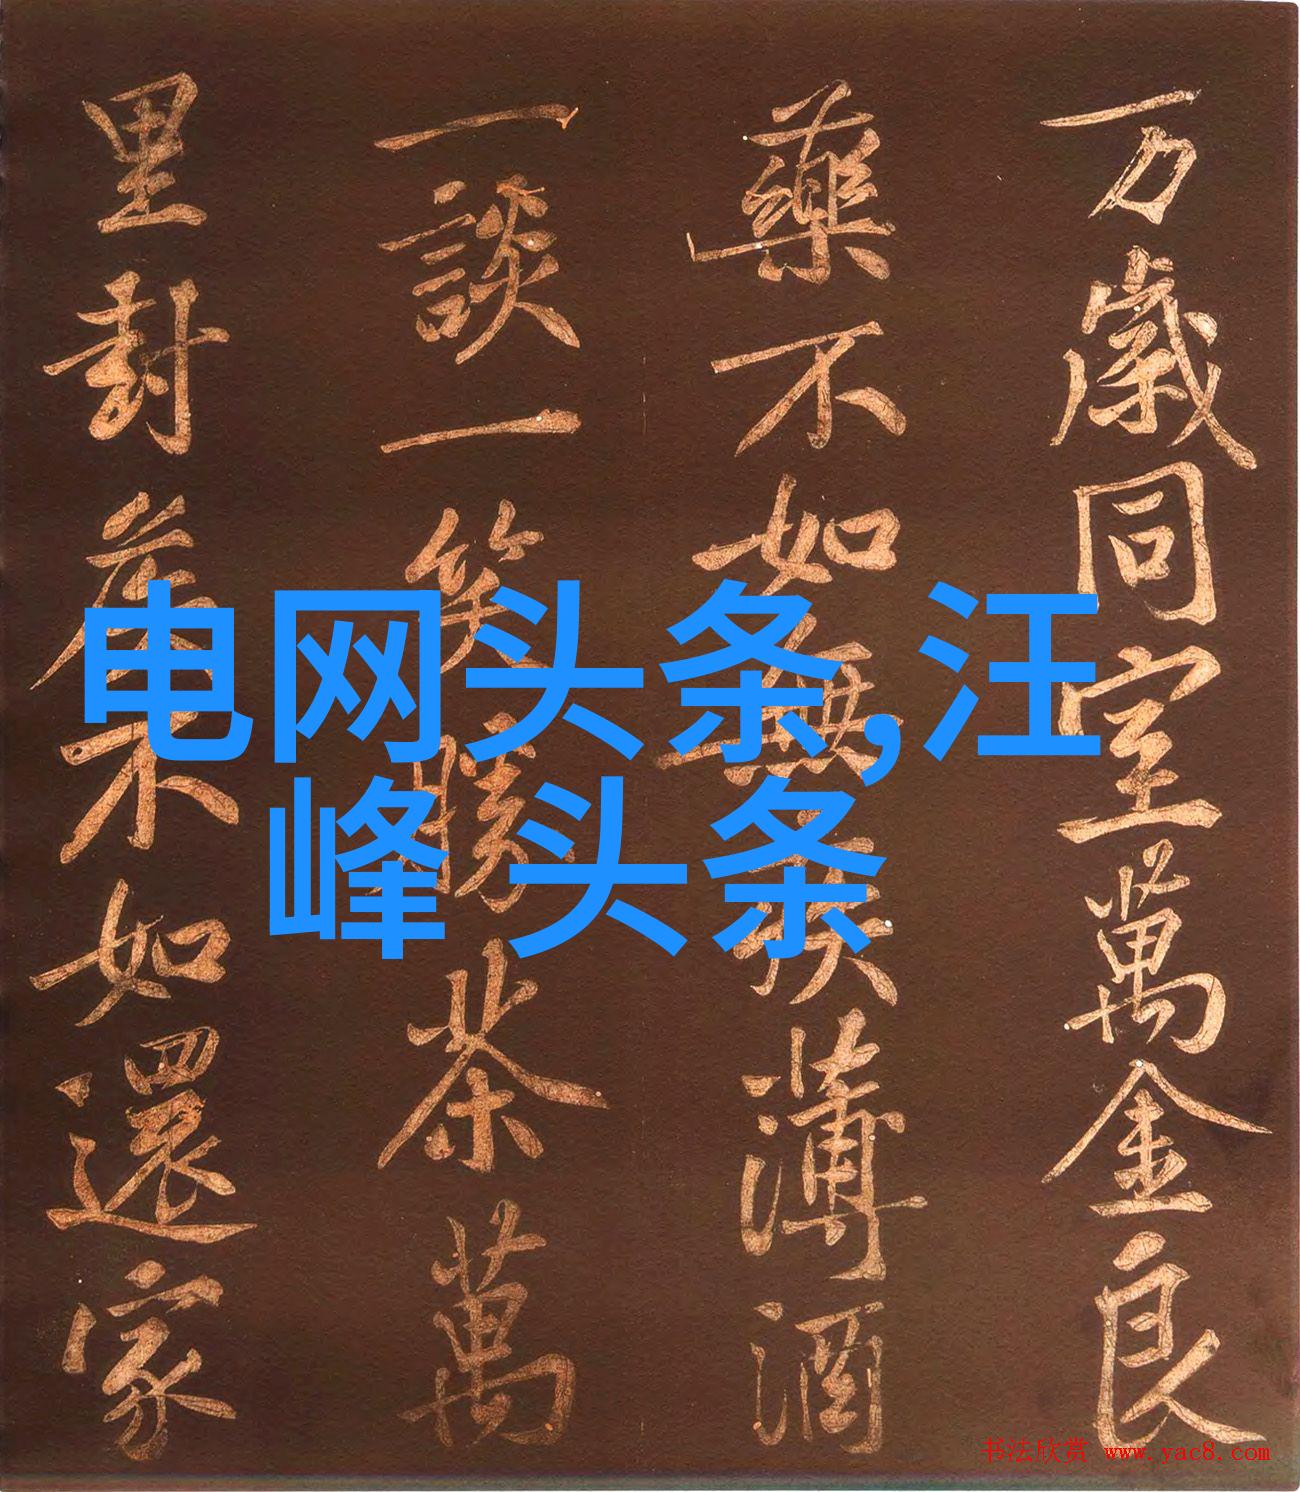 万歲同室萬金良
藥不如無疾薄酒
一談一笑勝茶萬
里封矦不如還家
电网头条,汪
峰 头条
书法欣赏 www.yac8.com